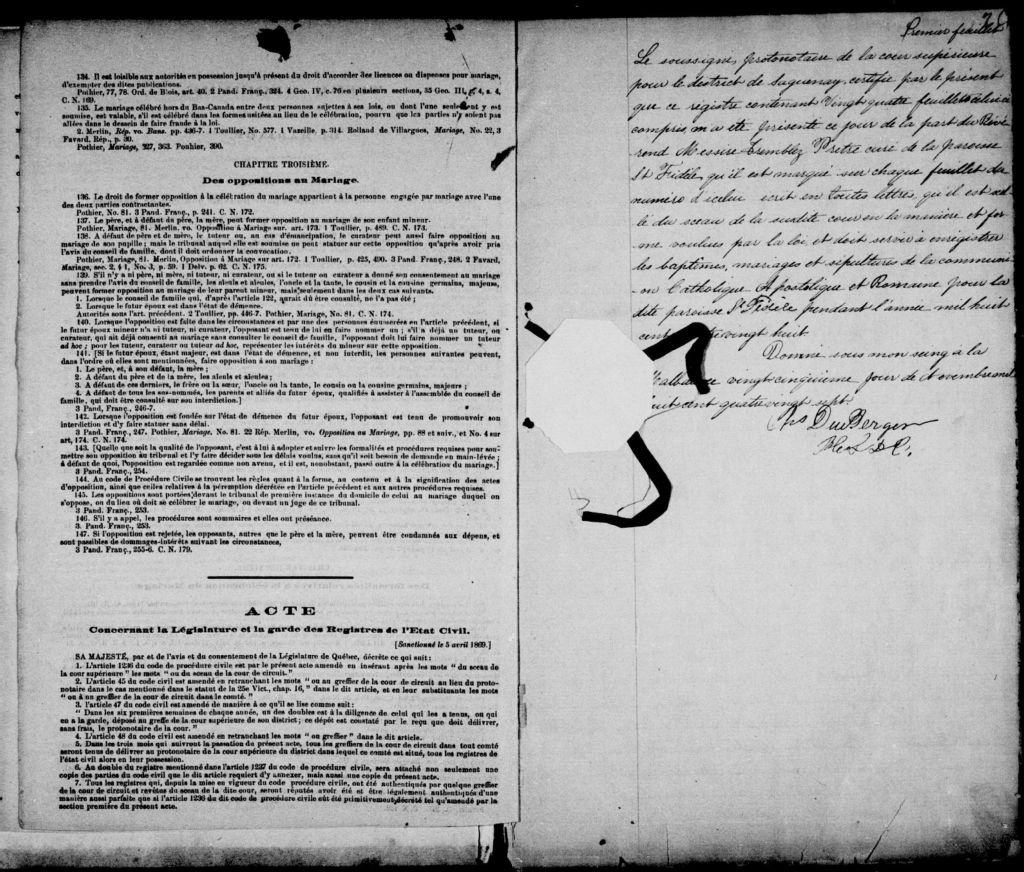 134. Il est loisible aux autorités en possession jusqu'à présent du droit d'accorder des licences ou dispenses pour mariage,
d'exempter des dites publications.
Pothier, 77, 78. Ord. de Blois, art. 40. 2 Pand. Franç., 324. 4 Geo. IV, c. 76 en plusieurs sections, 35 Geo. III, c. 4, s. 4,
C. N. 169.
135. Le mariage célébré hors du Bas-Canada entre deux personnes sujettes à ses lois, ou dont l'une seulement y est
soumise, est valable, s'il est célébré dans les formes usitées au lieu de la célébration, pourvu que les parties n'y soient pas
allées dans le dessein de faire fraude à la loi.
2. Merlin, Rép. vo. Bans. pp. 436-7. 1 Toullier, No. 577. 1 Vazeille. p. 314. Rolland de Villargues, Mariage, No. 22, 3
Favard, Rép., p. 30.
Pothier, Mariage, 327, 363. Ponhier, 390.
CHAPITRE TROISIÈME.
Des oppositions au Mariage.
136. Le droit de former opposition à la célébration du mariage appartient à la personne engagée par mariage avec l'une
des deux parties contractantes.
Pothier, No. 81. 3 Pand. Franç., p. 241. C. N. 172.
137. Le père, et à défaut du père, la mère, peut former opposition au mariage de son enfant mineur.
Pothier, Mariage, 81. Merlin, vo. Opposition à Mariage sur. art. 173. 1 Toullier, p. 489. C. N. 173.
138. A défaut de père et de mère, le tuteur ou, au cas d'émancipation, le curateur peut aussi faire opposition au
mariage de son pupille; mais le tribunal auquel elle est soumise ne peut statuer sur cette opposition qu'après avoir pris
l'avis du conseil de famille, dont il doit ordonner la convocation.
Pothier, Mariage, 81. Merlin, Opposition à Mariage sur art. 172. 1 Toullier, p. 425, 490. 3 Pand. Franç., 248. 2 Favard,
Mariage, sec. 2, § 1, No. 3, p. 59. 1 Delv. p. 62. C. N. 175.
139. S'il n'y a ni père, ni mère, ni tuteur, ni curateur, ou si le tuteur ou curateur a donné son consentement au mariage
sans prendre l'avis du conseil de famille, les aïeuls et aïeules, l'oncle et la tante, le cousin et la cousine germains, majeurs,
peuvent former opposition au mariage de leur parent mineur, mais seulement dans les deux cas suivants.
1. Lorsque le conseil de famille qui, d'après l'article 122, aurait dû être consulté, ne l'a pas été;
2. Lorsque le futur époux est dans l'état de démence.
Autorités sous l'art. précédent. 2 Toullier, pp. 446-7. Pothier, Mariage, No. 81. C. N. 174.
140. Lorsque l'opposition est faite dans les circonstances et par une des personnes énumérées en l'article précédent, si
le futur époux mineur n'a ni tuteur, ni curateur, l'opposant est tenu de lui en faire nommer un; s'il a déjà un tuteur, ou
curateur, qui ait déjà consenti au mariage sans consulter le conseil de famille, l'opposant doit lui faire nommer un tuteur
ad hoc; pour les tuteur, curateur ou tuteur ad hoc, représenter les intérêts du mineur sur cette opposition.
141. [Si le futur époux, étant majeur, est dans l'état de démence, et non interdit, les personnes suivantes peuvent,
dans l'ordre où elles sont mentionnées, faire opposition à son mariage:
1. Le père, et, à son défaut, la mère;
2. A défaut du père et de la mère, les aïeuls et aïeules;
3. A défaut de ces derniers, le frère ou la sœur, l'oncle ou la tante, le cousin ou la cousine germains, majeurs;
4. A défaut de tous les sus-nommés, les parents et alliés du futur époux, qualifiés à assister à l'assemblée du conseil de
famille, qui doit être consulté sur son interdiction.]
3 Pand. Franç., 246-7.
142. Lorsque l'opposition est fondée sur l'état de démence du futur époux, l'opposant est tenu de promouvoir son
interdiction et d'y faire statuer sans délai.
3 Pand. Franç., 247. Pothier, Mariage, No. 81. 22 Rép. Merlin, vo. Opposition au Mariage, pp. 88 et suiv., et No. 4 sur
art, 174. C. N. 174.
143. [Quelque soit la qualité de l'opposant, c'est à lui à adopter et suivre les formalités et procédures requises pour sou-
mettre son opposition au tribunal et l'y faire décider sous les délais voulus, sans qu'il soit besoin de demande en main-levée;
à défaut de quoi, l'opposition est regardée comme non avenu, et il est, nonobstant, passé outre à la célébration du mariage.]
3 Pand. Franç., 254.
144. Au code de Procédure Civile se trouvent les règles quant à la forme, au contenu et à la signification des actes
d'opposition, ainsi que celles relatives à la péremption décrétée en l'article précédent et aux autres procédures requises.
145. Les oppositions sont portées devant le tribunal de première instance du domicile de celui au mariage duquel on
s'oppose, ou du lieu où doit se célébrer le mariage, ou devant un juge de ce tribunal.
3 Pand. Franç., 253.
146. S'il y a appel, les procédures sont sommaires et elles ont préséance.
3. Pand. Franç., 253.
147. Si l'opposition est rejetée, les opposants, autres que le père et la mère, peuvent être condamnés aux dépens, et
sont passibles de dommages-intérêts suivant les circonstances,
3 Pand. Franç., 255-6. C. N. 179.
ACTE
Concernant la Législature et la garde des Registres de l'Etat Civil.
[Sanctionné le 5 avril 1869.]
SA MAJESTÉ, par et de l'avis et du consentement de la Législature de Québec, décrète ce qui suit:
1. L'article 1236 du code de procédure civile est par le présent acte amendé en insérant après les mots "du sceau de
la cour supérieure" les mots "ou du sceau de la cour de circuit."
2. L'article 45 du code civil est amendé en retranchant les mots "ou au greffier de la cour de circuit au lieu du proto-
notaire dans le cas mentionné dans le statut de la 25e Vict., chap. 16," dans le dit article, et en leur substituants les mots
"ou à un greffier de la cour de circuit dans le comté."
3. l'article 47 du code civil est amendé de manière à ce qu'il se lise comme suit:
"Dans les six premières semaines de chaque année, un des doubles est à la diligence de celui qui les a tenus, ou qui
en a la garde, déposé au greffe de la cour supérieure de son district; ce dépôt est constaté par le reçu que doit délivrer,
sans frais, le protonotaire de la cour."
4. L'article 48 du code civil est amendé en retranchant les mots "ou greffier" dans le dit article.
5. Dans les trois mois qui suivront la passation du présent acte, tous les greffiers de la cour de circuit dans tout comté
seront tenus de délivrer au protonotaire de la cour supérieure du district dans lequel ce comté est situé, tous les registres de
l'état civil alors en leur possession.
6. Au double du registre mentionné dans l'article 1237 du code de procédure civile, sera attaché non seulement une
copie des parties du code civil que le dit article requiert d'y annexer, mais aussi une copie du présent acte.
7. Tous les registres qui, depuis la mise en vigueur du code procédure civile, ont été authentiqués par quelque greffier
de la cour de circuit et revêtus du sceau de la dite cour, seront réputés avoir été et être légalement authentiqués d'une
manière aussi parfaite que si l'article 1236 du dit code de procédure civile eût été primitivement décrété tel qu'amendé par la
section première du présent acte.
Premier feuillet
Le soussigné, protonotaire de la cour supérieure
pour le district de Saguenay, certifie par le présent
que ce registre contenant Vingt quatre feuillets celui ci
compris, m'a été présenté ce jour de la part du Révé
rend Messire Tremblez Prêtre curé de la paroisse
St Fidèle qu'il est marqué sur chaque feuillet du
numéro d'icelui écrit en toutes lettres, qu'il est scel
lé du sceau de la susdite cour en la manière et for
me voulues par la loi, et doit servir à enregistrer
les baptêmes, mariages et sépultures de la communi
on Catholique Apostolique et Romaine pour la
dite paroisse St Fidèle pendant l'année mil huit
cent vingt huit
Donné sous mon seing à la
vingt cinquième jour de Novembre mil
cent quatre vingt sept
Chs DuBerger